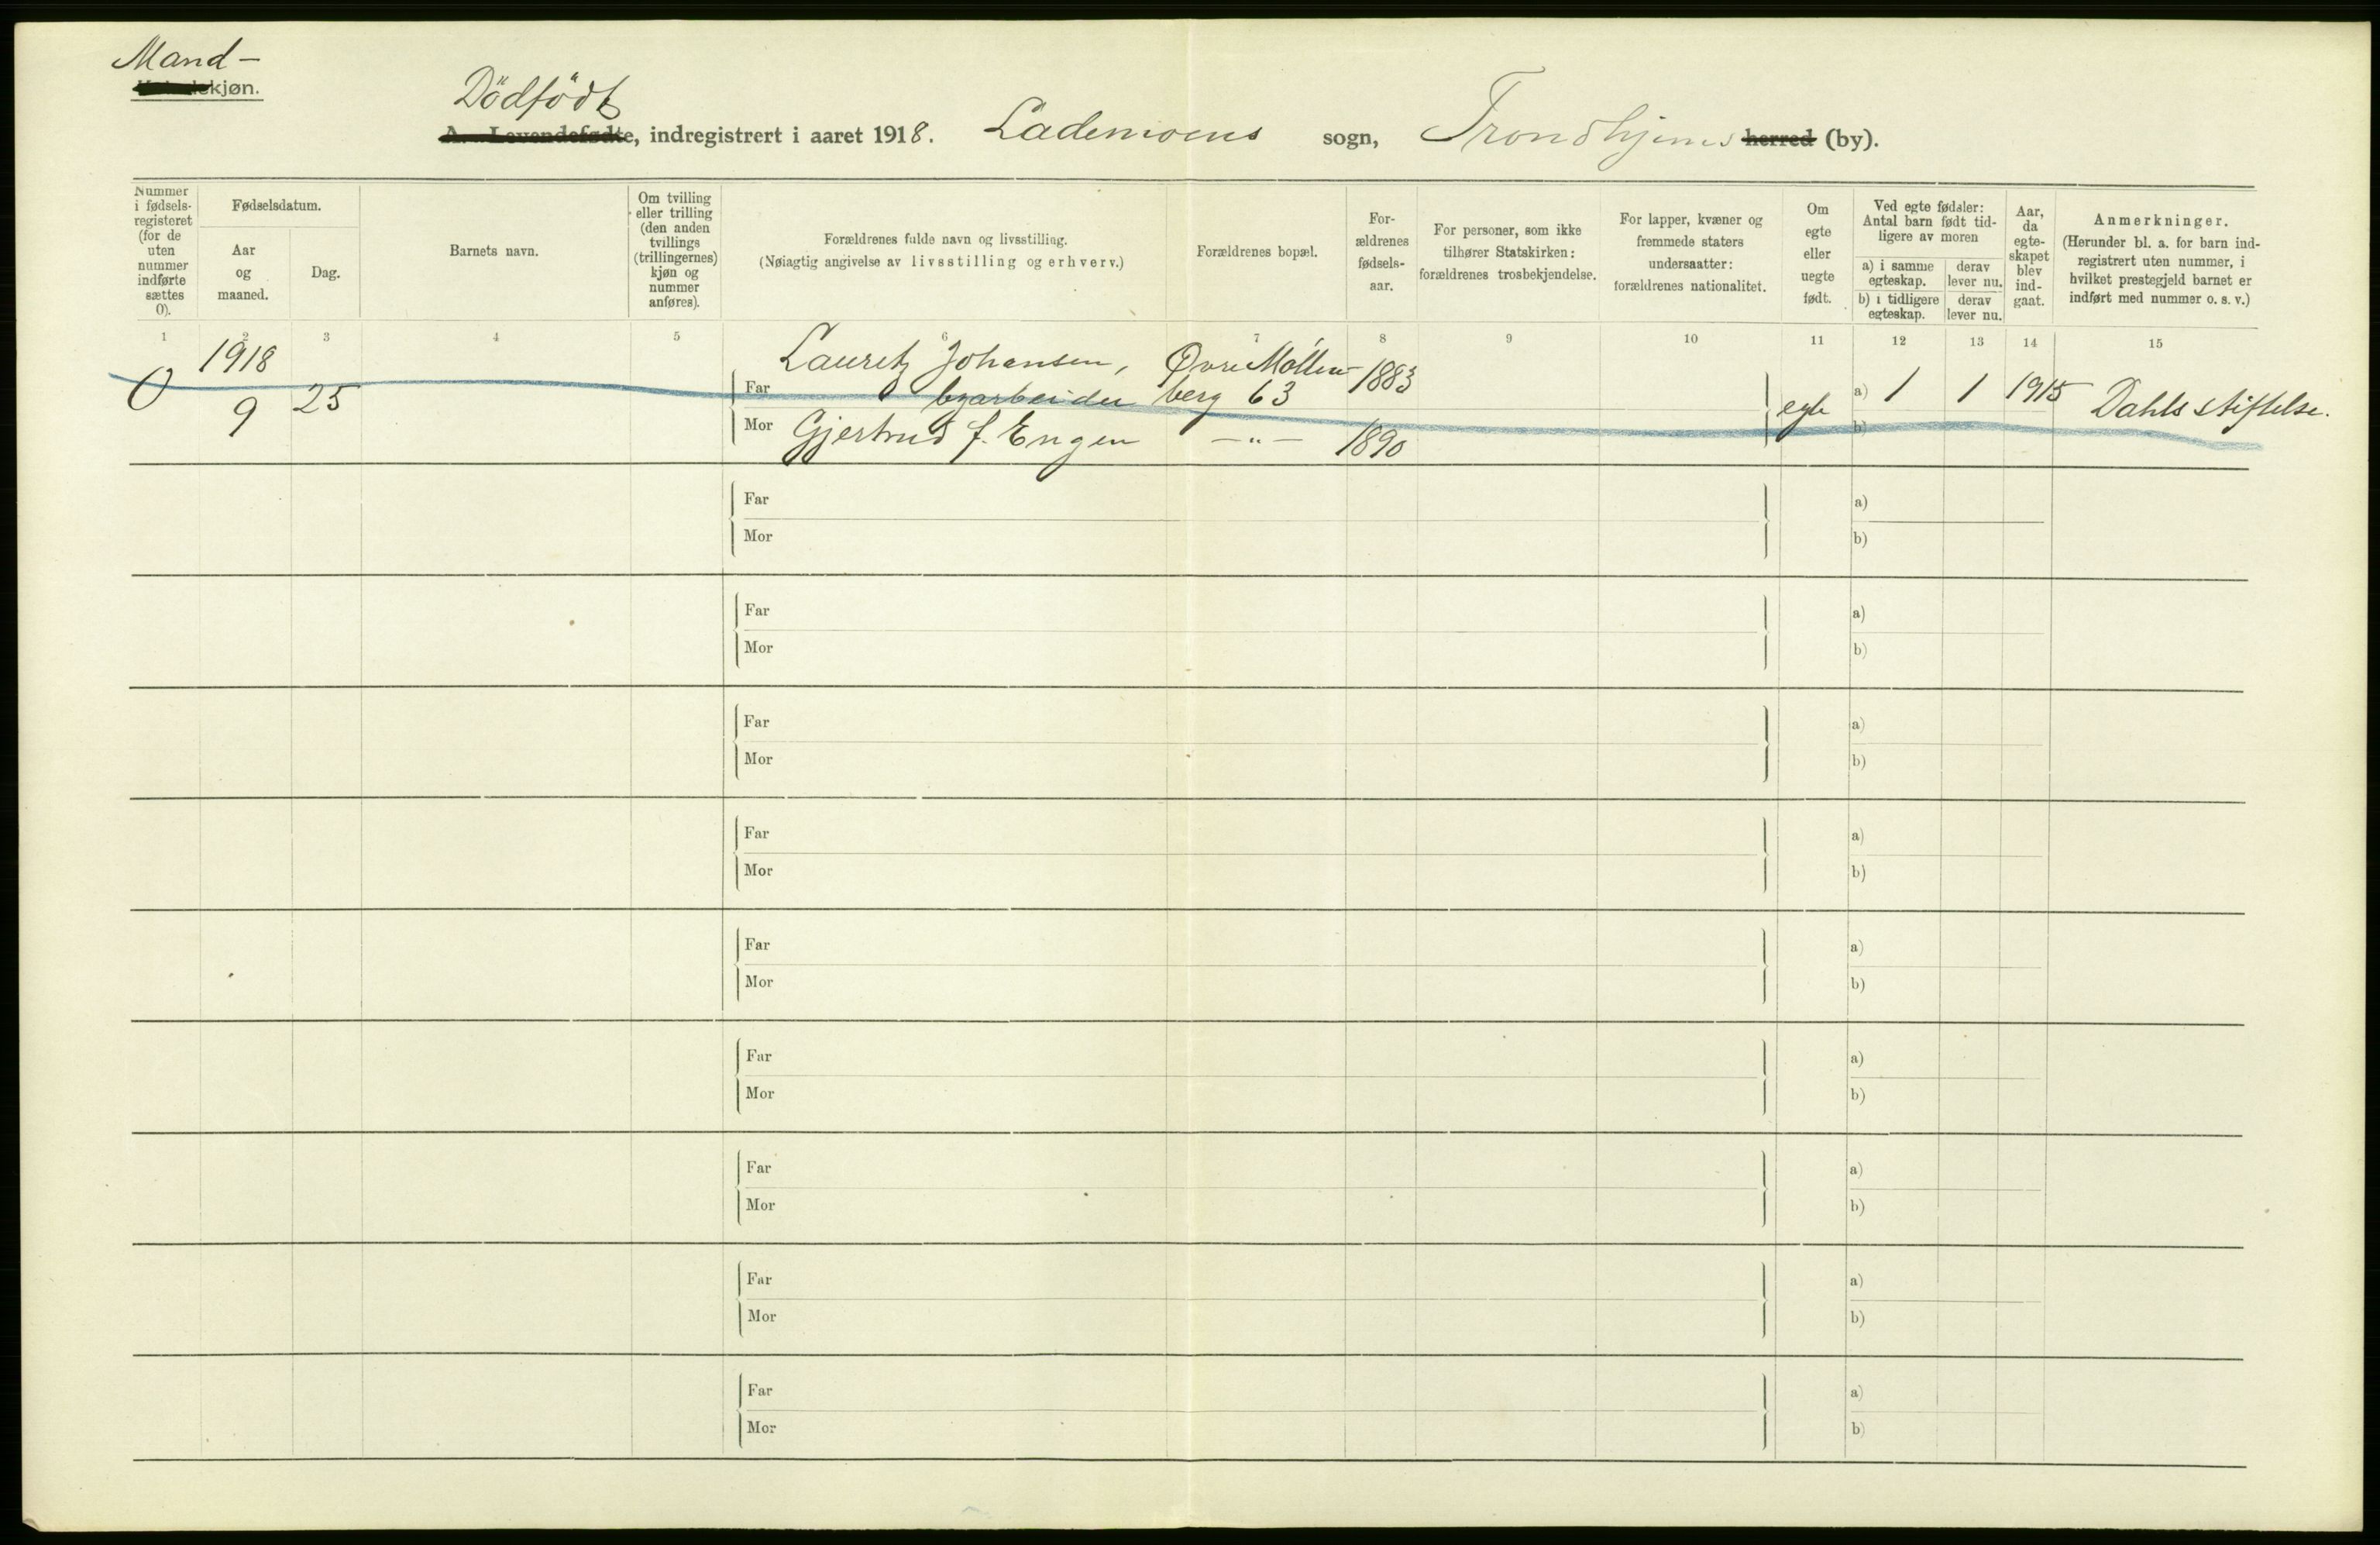 Mand-
kjøn.
Dödfödt
A. Levendefødte, indregistrert i aaret 1918. Lademoens sogn, Trondhjems herred (by).
Nummer i fødsels-registeret (for de uten nummer indførte sættes 0).
Fødselsdatum.
Aar og maaned.
Dag.
Barnets navn.
Om tvilling eller trilling (den anden tvillings (trillingernes) kjøn og nummer anføres).
Forældrenes fulde navn og livsstilling.
(Nøiagtig angivelse av livsstilling og erhverv.)
Forældrenes bopæl.
For-ældrenes fødsels-aar.
For personer, som ikke tilhører Statskirken: forældrenes trosbekjendelse.
For lapper, kvæner og fremmede staters undersaatter: forældrenes nationalitet.
Om egte eller uegte født.
Ved egte fødsler: Antal barn født tid-ligere av moren
a) i samme egteskap.
derav lever nu.
b) i tidligere egteskap.
derav lever nu.
Aar, da egte-skapet blev ind-gaat.
Anmerkninger.
(Herunder bl. a. for barn ind-registrert uten nummer, i hvilket prestegjeld barnet er indført med nummer o. s. v.)
1 2 3 4 5 6 7 8 9 10 11 12 13 14 15
0 1918 9 25
Far Lauretz Johansen, byarbeider Øvre Möllenberg 63 1883
Mor Gjertrud f. Engen —"— 1890
egte a) 1 1 1915 Dahls stiftelse.
b)
Far a)
Mor b)
Far a)
Mor b)
Far a)
Mor b)
Far a)
Mor b)
Far a)
Mor b)
Far a)
Mor b)
Far a)
Mor b)
Far a)
Mor b)
Far a)
Mor b)